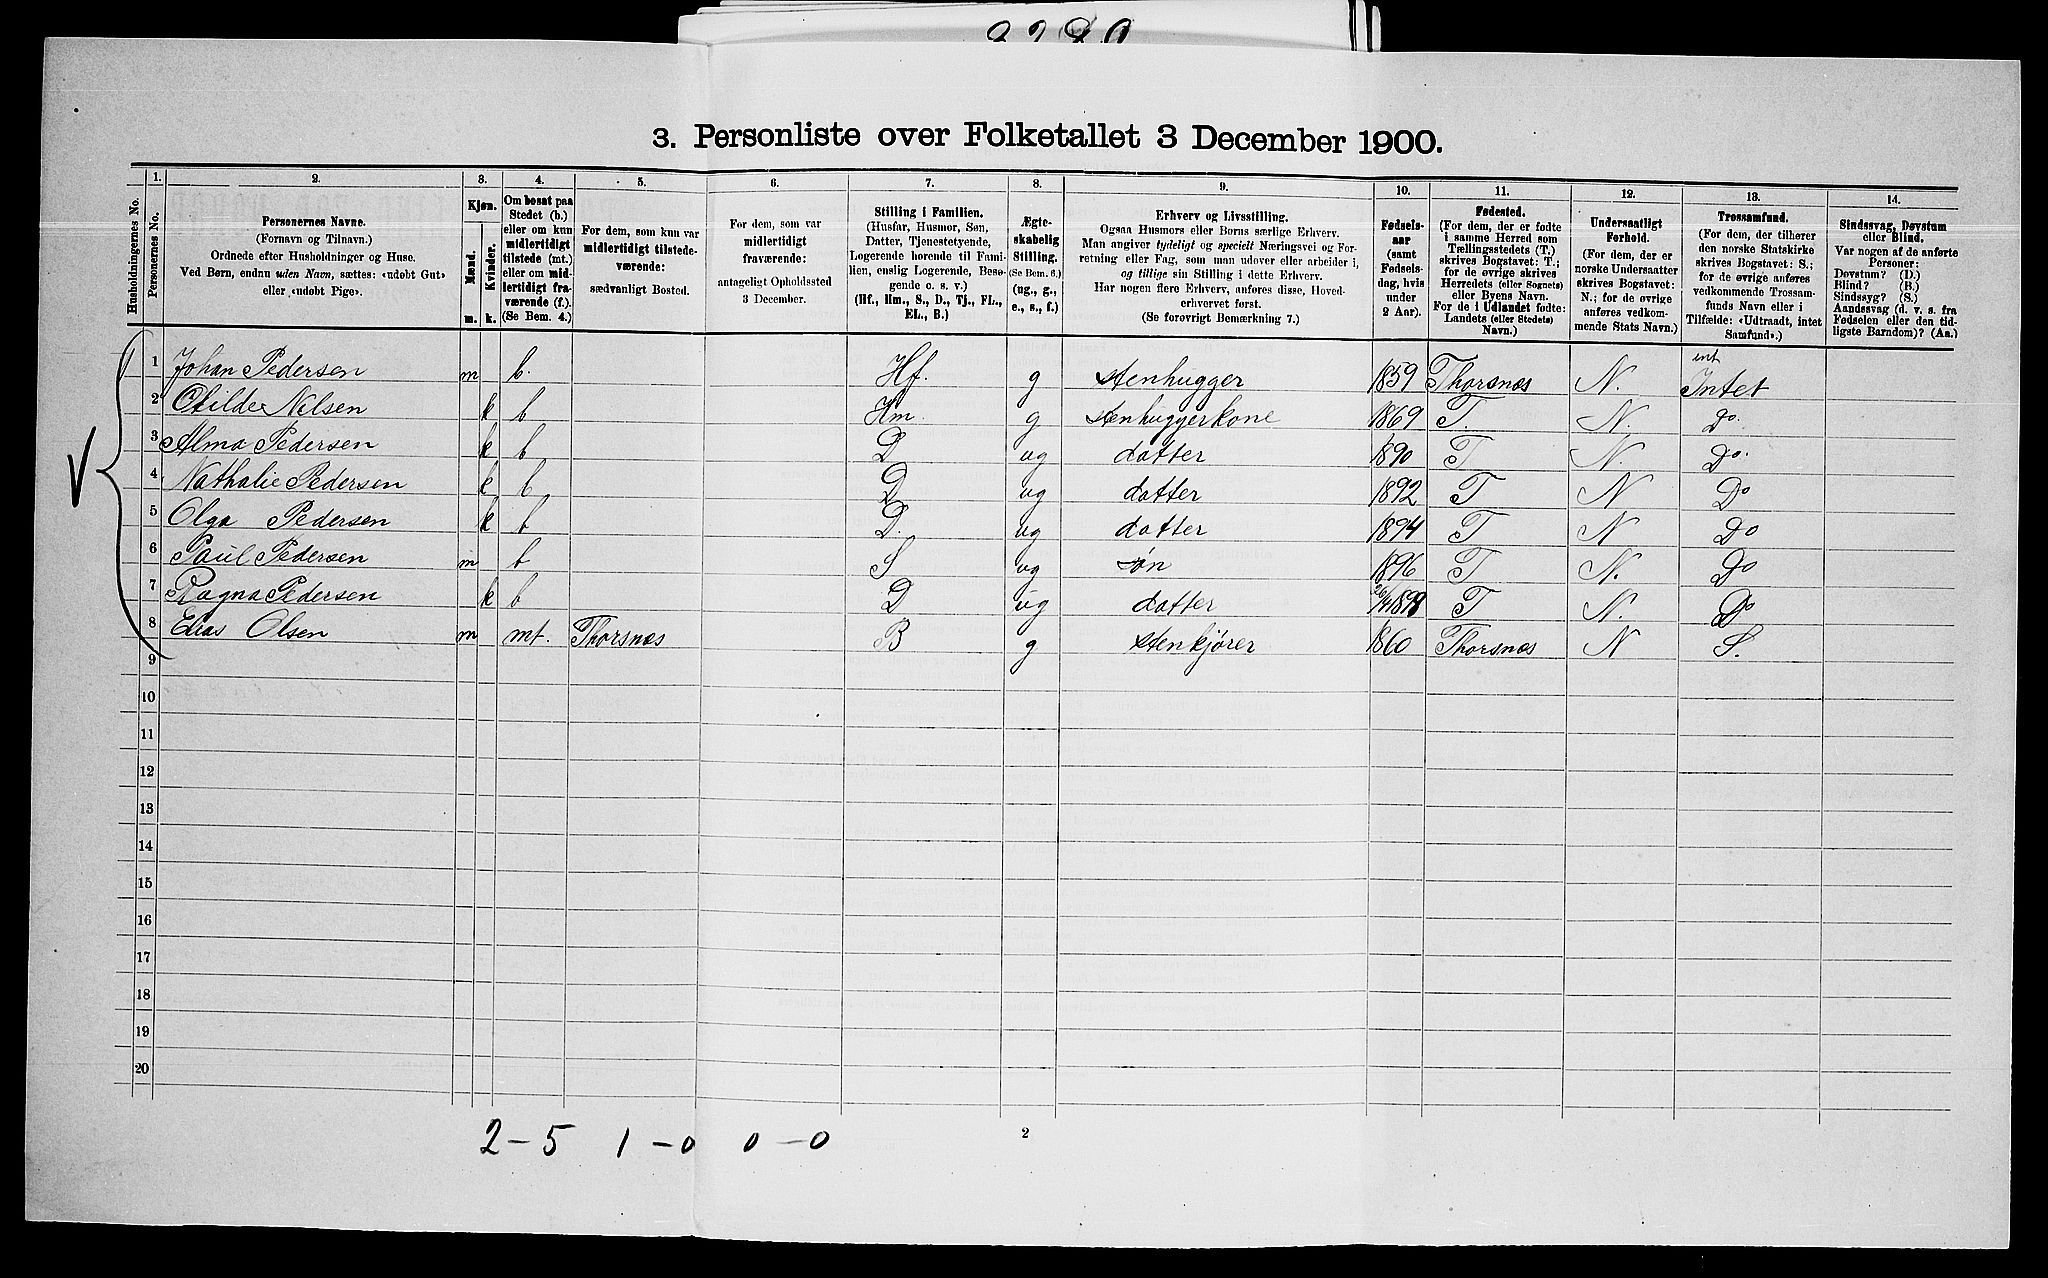 3. Personliste over Folketallet 3 December 1900.
Husholdningernes No.
1. Personernes No.
2. Personernes Navne.
(Fornavn og Tilnavn.)
Ordnede efter Husholdninger og Huse.
Ved Børn, endnu uden Navn, sættes: «udøbt Gut»
eller «udøbt Pige».
3. Kjøn.
Mænd. Kvinder.
m. k.
4. Om bosat paa
Stedet (b.)
eller om kun
midlertidigt
tilstede (mt.)
eller om mid-
lertidigt fra-
værende (f.).
(Se Bem. 4.)
5. For dem, som kun var
midlertidigt tilstede-
værende:
sædvanligt Bosted.
6. For dem, som var
midlertidigt
fraværende:
antageligt Opholdssted
3 December.
7. Stilling i Familien.
(Husfar, Husmor, Søn,
Datter, Tjenestetyende,
Logerende hørende til Fami-
lien, enslig Logerende, Besø-
gende o. s. v.)
(Hf., Hm., S., D., Tj., FL.,
EL., B.)
8. Ægte-
skabelig
Stilling.
(Se Bem. 6.)
(ug., g.,
e., s., f.)
9. Erhverv og Livsstilling.
Ogsaa Husmors eller Børns særlige Erhverv.
Man angiver tydeligt og specielt Næringsvei og For-
retning eller Fag, som man udøver eller arbeider i,
og tillige sin Stilling i dette Erhverv.
Har nogen flere Erhverv, anføres disse, Hoved-
erhvervet først.
(Se forøvrigt Bemærkning 7.)
10. Fødsels-
aar
(samt
Fødsels-
dag, hvis
under
2 Aar).
11. Fødested.
(For dem, der er fødte
i samme Herred som
Tællingsstedets (T.)
skrives Bogstavet: T.;
for de øvrige skrives
Herredets (eller Sognets)
eller Byens Navn.
For de i Udlandet fødte:
Landets (eller Stedets)
Navn.)
12. Undersaatligt
Forhold.
(For dem, der er
norske Undersaatter
skrives Bogstavet:
N.; for de øvrige
anføres vedkom-
mende Stats Navn.)
13. Trossamfund.
(For dem, der tilhører
den norske Statskirke
skrives Bogstavet: S.;
for de øvrige anføres
vedkommende Trossam-
funds Navn eller i
Tilfælde: «Udtraadt, intet
Samfund».)
14. Sindssvag, Døvstum
eller Blind.
Var nogen af de anførte
Personer:
Døvstum? (D.)
Blind? (B.)
Sindssyg? (S.)
Aandssvag (d. v. s. fra
Fødselen eller den tid-
ligste Barndom)? (Aa.)
int
1 Johan Pedersen m b. Hf. g stenhugger 1859 Thorsnes N. Intet
2 Otilde Nelsen k b Hm. g stenhuggerkone 1869 T. N. Do.
3 Alma Pedersen k b D ug datter 1890 T N. Do.
4 Nathalie Pedersen k b D ug datter 1892 T N Do
5 Olga Pedersen k b D. ug datter 1894 T N Do
6 Paul Pedersen m b S ug søn 1896 T N. Do
7 Ragna Pedersen k b D ug datter 1898 T N. Do
8 Elias Olsen m mt. Thorsnes B g stenkjører 1860 Thorsnes N S.
9
10
11
12
13
14
15
16
17
18
19
20
2-5 1-0 0-0
2